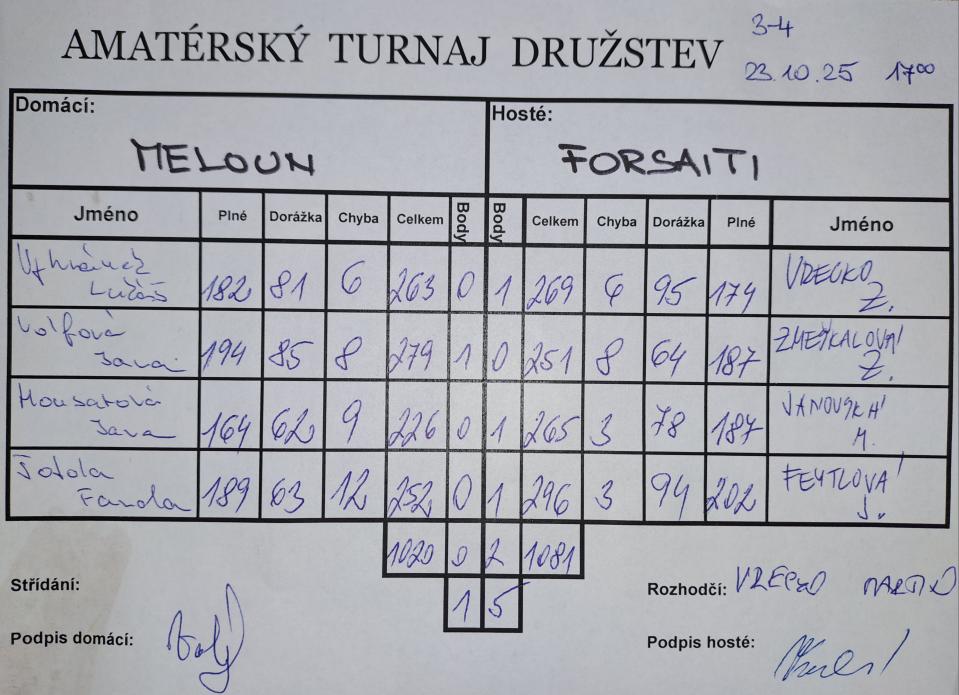 AMATÉRSKÝ TURNAJ DRUŽSTEV
3-4
23.10.25 17⁰⁰
Domácí: Hosté:
MELOUN FORSAITI
Jméno Plné Dorážka Chyba Celkem Body Body Celkem Chyba Dorážka Plné Jméno
Lukáš 182 81 6 263 0 1 269 6 95 174 VRECKO Z.
Volfová Jana 194 85 8 279 1 0 251 8 64 187 ZMEŠKALOVÁ Z.
Jana 164 62 9 226 0 1 265 3 78 187 M.
Fanda 189 63 12 252 0 1 296 3 94 202 FEYTLOVÁ J.
1020 0 2 1081
1 5
Střídání: Rozhodčí: VRECKO
Podpis domácí: Podpis hosté: